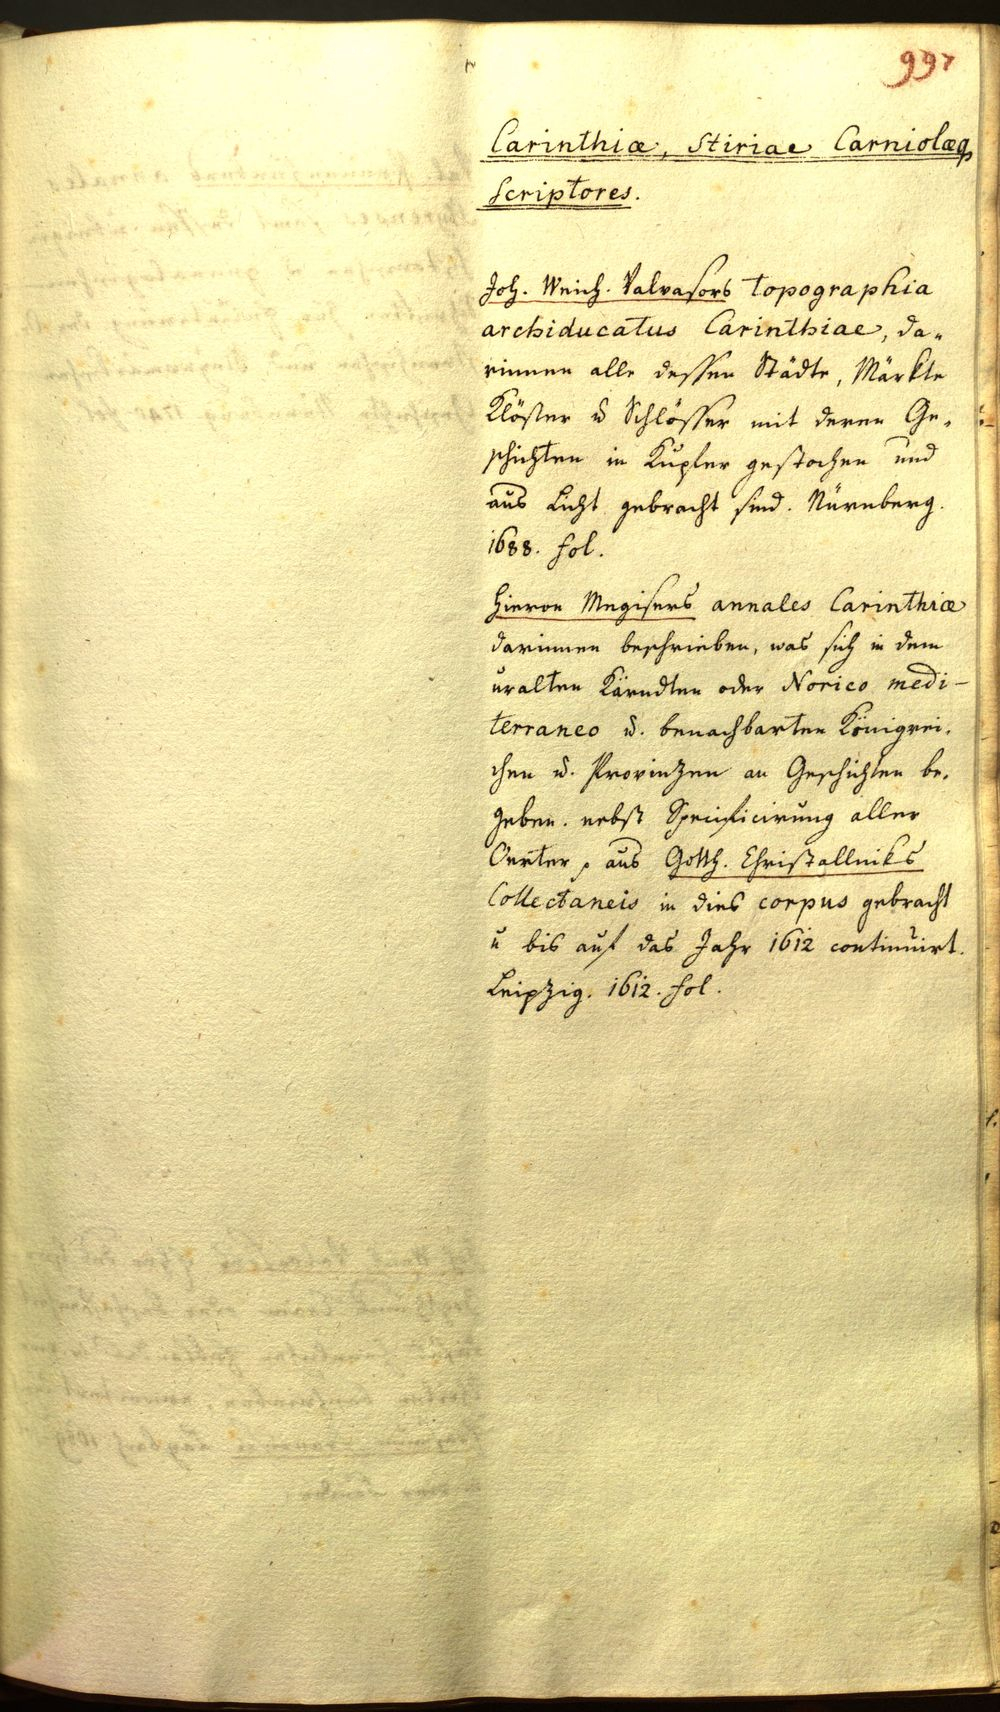 997
Carinthiæ, Stiriae Carniolæq
Scriptores.
Joh. Weich. Valvasors topographia
archiducatus Carinthiae, da„
rinnen alle dessen Städte, Märkte
Klöster u Schlösser mit deren Ge„
schichten in Kupfer gestochen und
ans Licht gebracht sind. Nürnberg.
1688. fol.
Hieron Megisers annales Carinthiæ
darinnen beschrieben, was sich in dem
uralten Kärndten oder Norico medi-
terraneo u. benachbarten Königrei„
chen u. Provinzen an Geschichten be„
geben. nebst Specificirung aller
Oerter, aus Gotth. Christallniks
Collectaneis in dies corpus gebracht
u bis auf das Jahr 1612 continuirt.
Leipzig. 1612. fol.